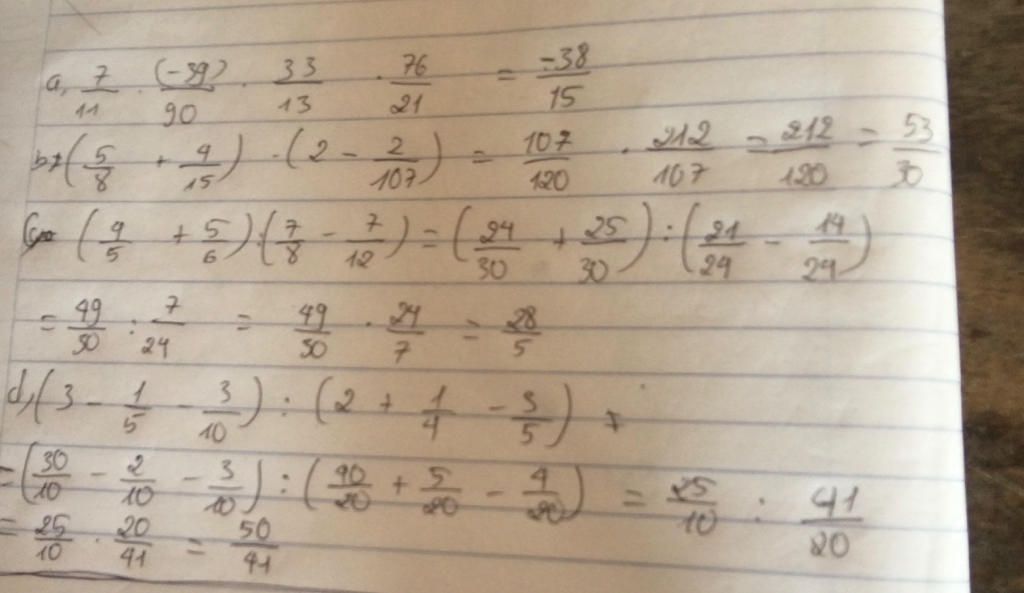 a, 7/11 . (-39)/90 . 33/13 . 76/21 = -38/15
b, (5/8 + 4/15) . (2 - 2/107) = 107/120 . 212/107 = 212/120 = 53/30
(4/5 + 5/6) : (7/8 - 7/12) = (24/30 + 25/30) : (21/24 - 14/24)
= 49/30 : 7/24 = 49/30 . 24/7 = 28/5
d, (3 - 1/5 - 3/10) : (2 + 1/4 - 3/5)
= (30/10 - 2/10 - 3/10) : (40/20 + 5/20 - 4/20) = 25/10 : 41/20
= 25/10 . 20/41 = 50/41